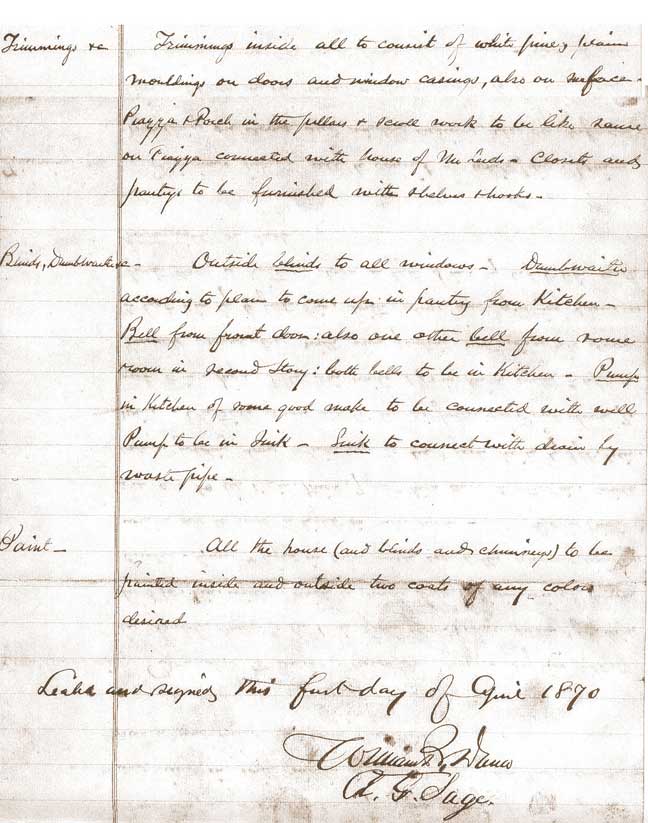 Trimmings &c Trimmings inside all to consist of white pine, plain
mouldings on doors and window casings, also on surface.
Piazza & Porch in the pillars & scroll work to be like same
on Piazza connected with house of Mr Leeds - Closets and
pantrys to be furnished with shelves & hooks -
Blinds, Dumbwaiter &c - Outside blinds to all windows - Dumbwaiter
according to plan to come up in pantry from Kitchen -
Bell from front door: also one other bell from some
room in second Story: both bells to be in Kitchen - Pump
in Kitchen of some good make to be connected with well
Pump to be in Sink - Sink to connect with drain by
waste pipe -
Paint - All the house (and blinds and chimneys) to be
painted inside and outside two coats of any color
desired
Sealed and signed this first day of April 1870
William
A. G. Sage.